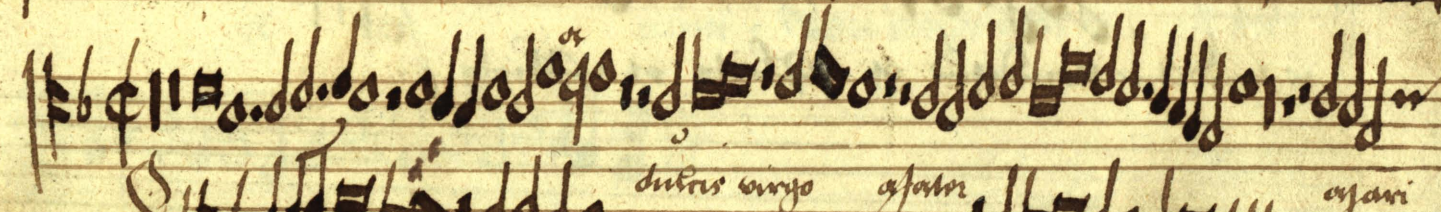 O dulcis virgo mater mari